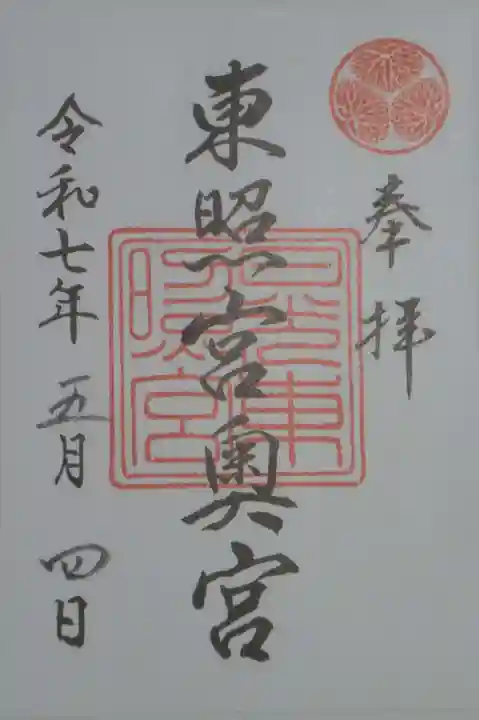 奉拝
東照宮奥宮
日光東照宮
令和七年 五月 四日